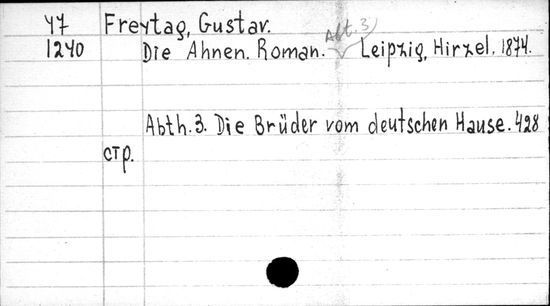 47 Freytag, Gustav.
1240 Die Ahnen. Roman. Abt. 3) Leipzig, Hirzel, 1874.
Abth. 3. Die Brüder vom deutschen Hause. 428
стр.